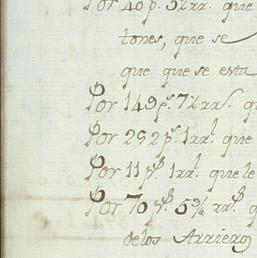 Por 40 p.s 5½ rr.s que
tones, que se
que que se esta
Por 149 p.s 7½ rr.s qu
Por 292 p.s 1 rr.l que
Por 11 p.s 1 rr.l que le
Por 70 p.s 5¾ rr.s q
delos Arrieros